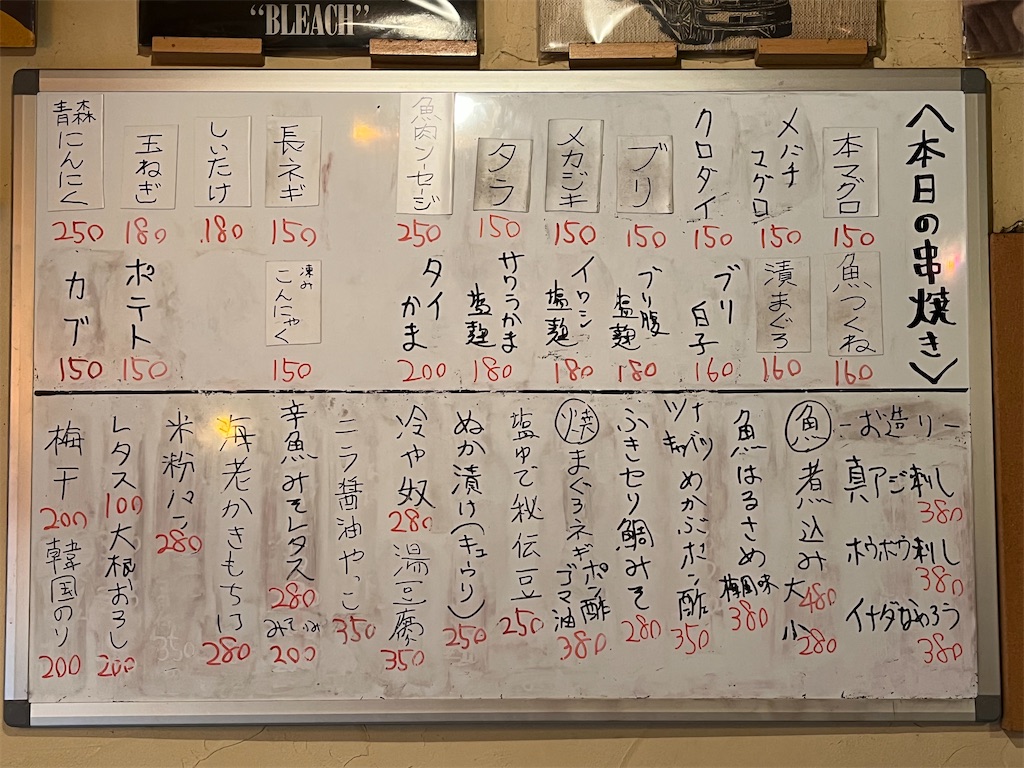 “BLEACH”
〈本日の串焼き〉
本マグロ
150
メバチ
マグロ
150
クロダイ
150
ブリ
150
メカジキ
150
タラ
150
魚肉ソーセージ
250
長ネギ
150
しいたけ
180
玉ねぎ
180
青森
にんにく
250
魚つくね
160
漬まぐろ
160
ブリ
白子
160
ブリ腹
塩麹
180
イワシ
塩麹
180
サワラかま
塩麹
180
タイ
かま
200
凍み
こんにゃく
150
ポテト
150
カブ
150
-お造り-
真アジ刺し
380
ホウボウ刺し
380
イナダなめろう
380
魚煮込み
大
480
小
280
魚はるさめ
梅風味
380
めかぶポン酢
350
ふきセリ鯛みそ
280
焼まぐろネギポン酢
ゴマ油
380
塩ゆで秘伝豆
250
ぬか漬け(キュウリ)
250
冷や奴
280
湯豆腐
350
ニラ醤油やっこ
350
辛魚みそレタス
280
みそのみ
200
海老かきもち汁
280
米粉パン
280
350
レタス
100
大根おろし
200
梅干
200
韓国のり
200